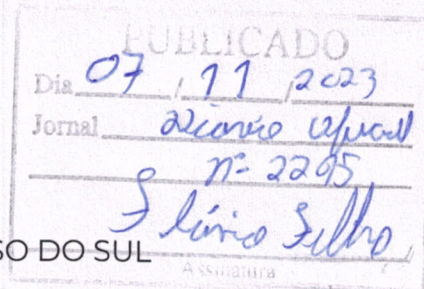 PUBLICADO
Dia 07 / 11 / 2023
Jornal Diário Oficial
nº 2295
Flávio Filho
SO DO SUL
Assinatura